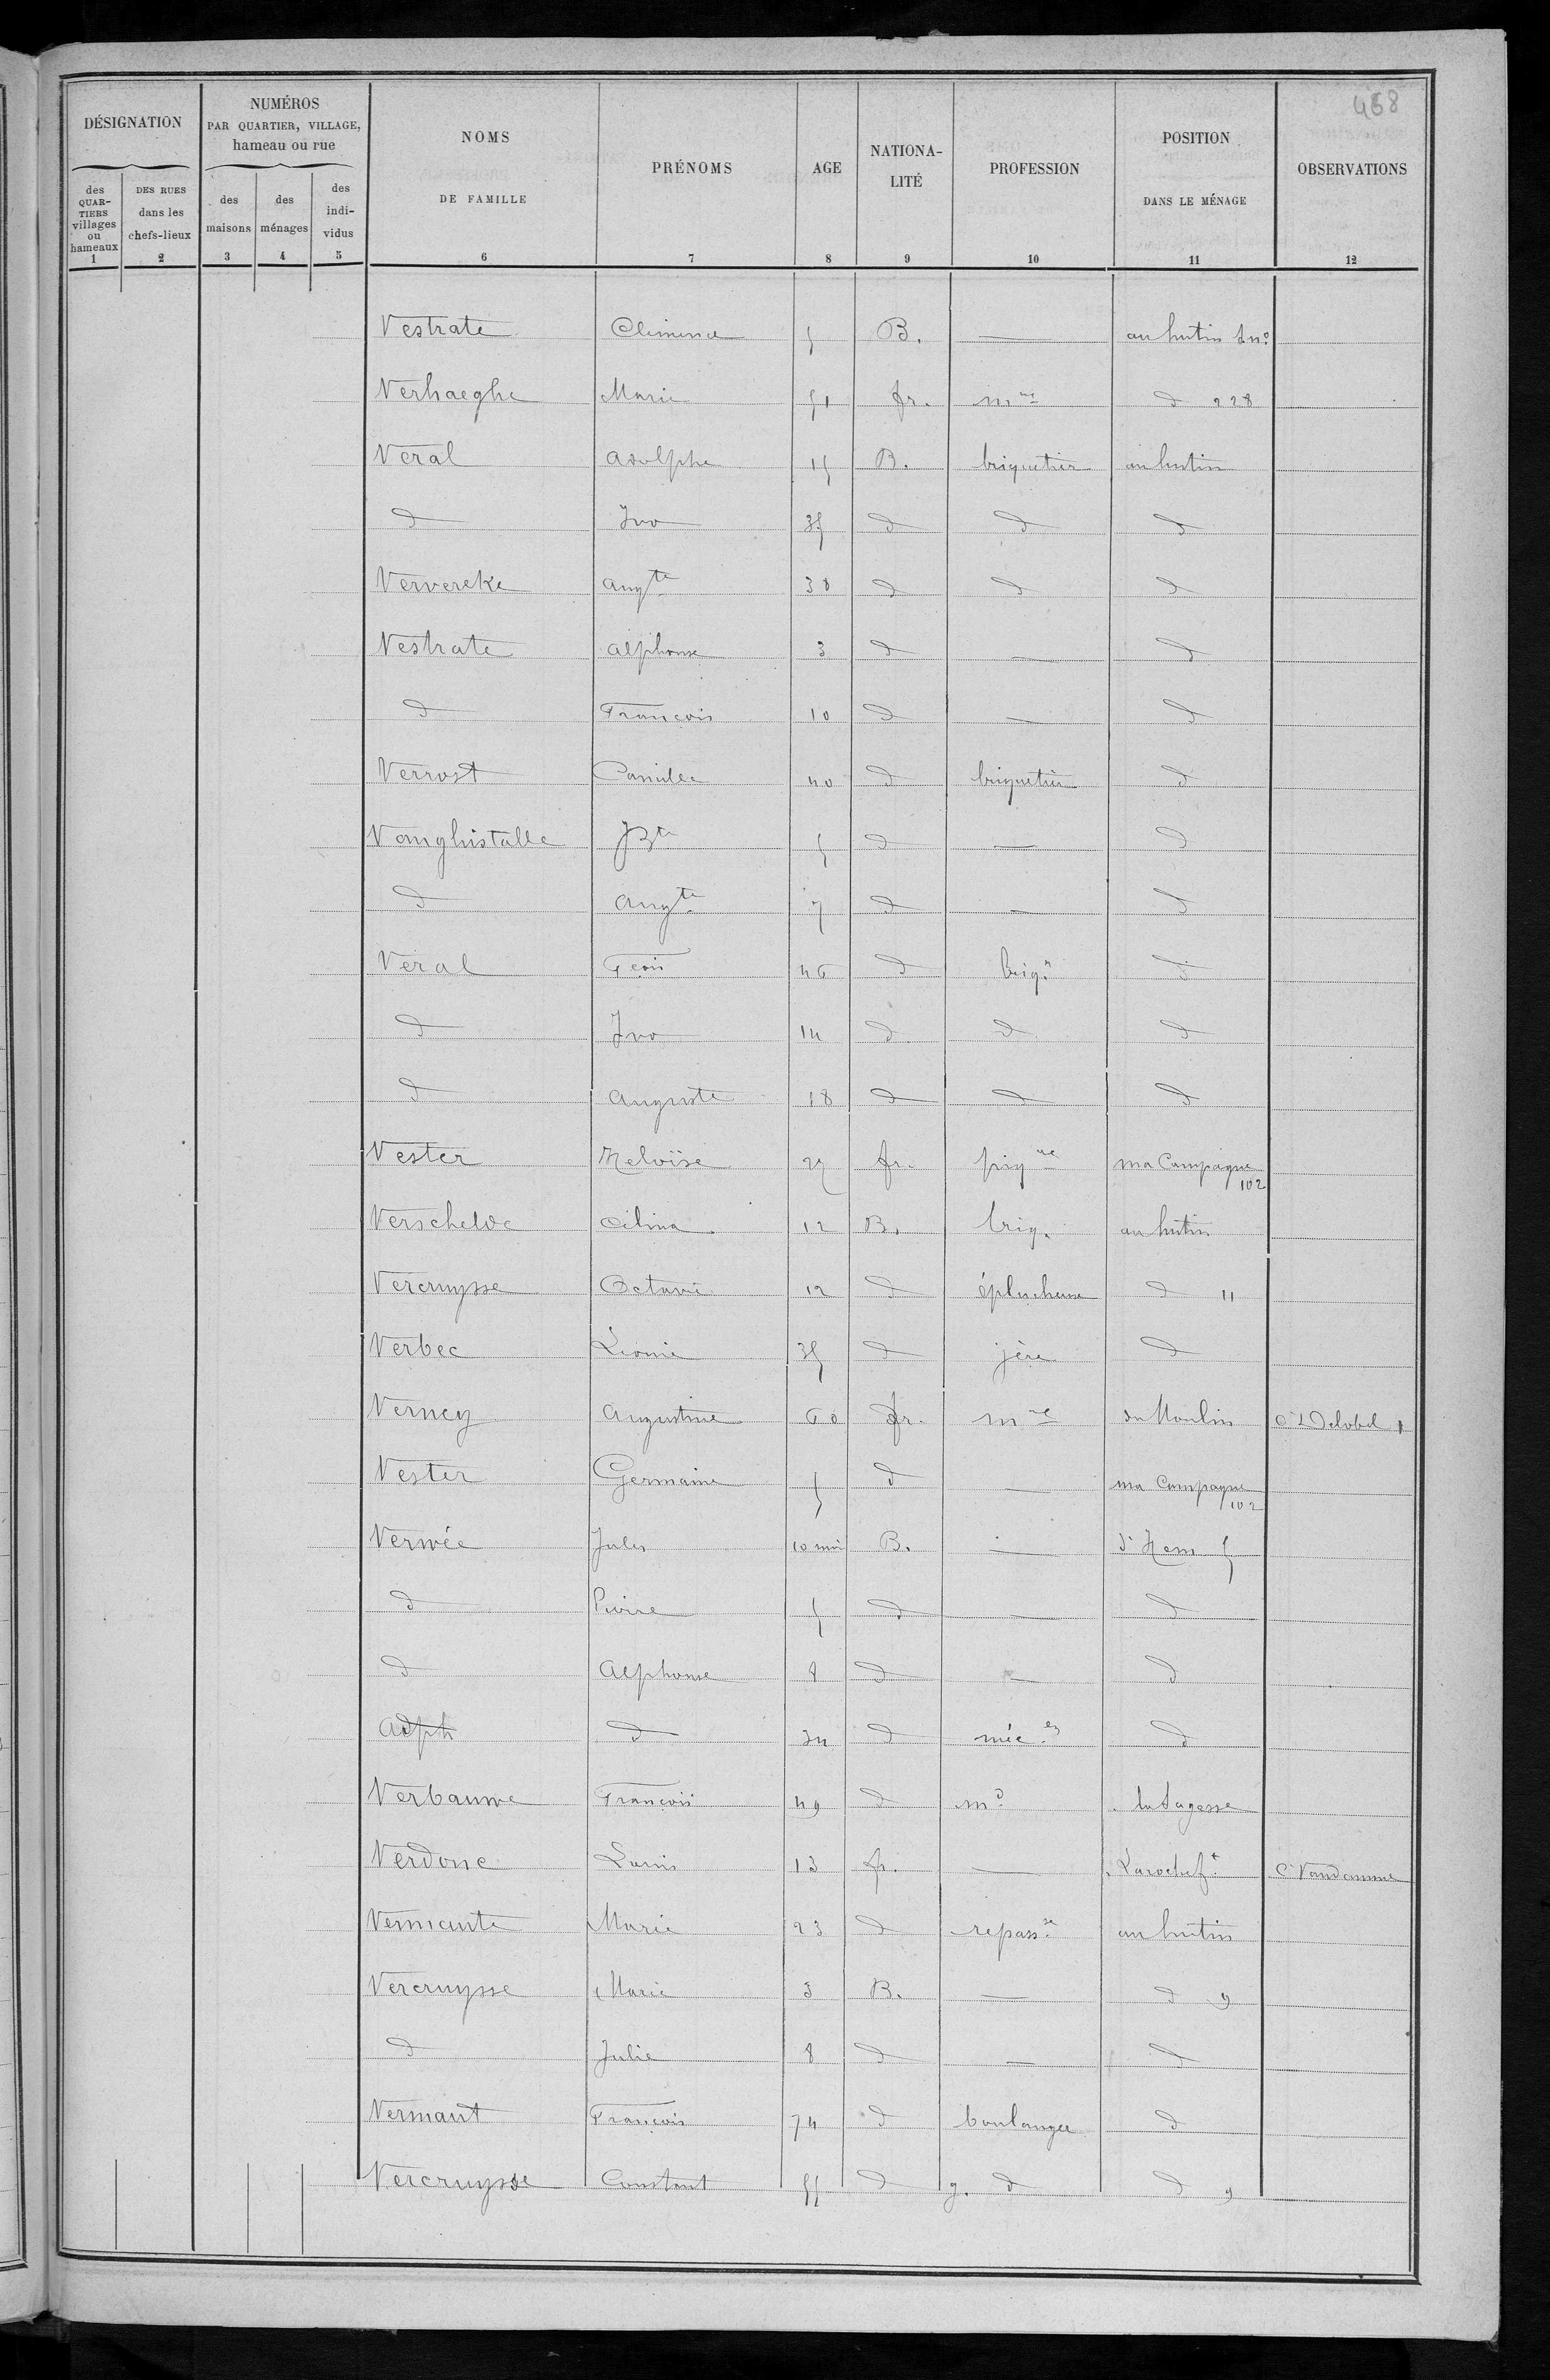 468
DÉSIGNATION
NUMÉROS
PAR QUARTIER, VILLAGE,
hameau ou rue
des QUAR-TIERS villages ou hameaux
DES RUES dans les chefs-lieux
des maisons
des ménages
des indi-vidus
NOMS DE FAMILLE
PRÉNOMS
AGE
NATIONA-LITÉ
PROFESSION
POSITION DANS LE MÉNAGE
OBSERVATIONS
1 2 3 4 5 6 7 8 9 10 11 12
Vestrate Clémence 5 B. — au hutin
Verhaeghe Marie 51 fr. mre d 228
Veral Adolphe 15 B. briquetier au hutin
d Ivo 35 d d d
Ververeke Augte 38 d d d
Vestrate Alphonse 3 d — d
d François 10 d — d
Verrost Camille 40 d briquetier d
Vanghistalle JBte 5 d — d
d Augte 7 d — d
Veral Fçois 46 d briqr d
d Ivo 14 d d d
d Auguste 18 d d d
Vester Héloïse 27 fr. piqre ma Campagne 102
Verschelde Célina 12 B. briq. au hutin
Vercruysse Octavie 12 d éplucheuse d 11
Verbec Léonie 35 d jère d
Verney Augustine 60 fr. mre du Moulin Cr Delobel 1
Vester Germaine 5 d — ma Campagne 102
Verwée Jules 10 moi B. — d'Hem 5
d Pierre 5 d — d
d Alphonse 8 d — d
Adph d 34 d méc. d
Verbauwe François 49 d md la Sagesse
Verdone Louis 13 fr. — Larocheft Cr Vandamme
Vermante Marie 23 d repasse au hutin
Vercruysse Marie 3 B. — d 9
d Julie 8 d — d
Vermant François 74 d boulanger d
Vercruysse Constant 55 d g. d d 9